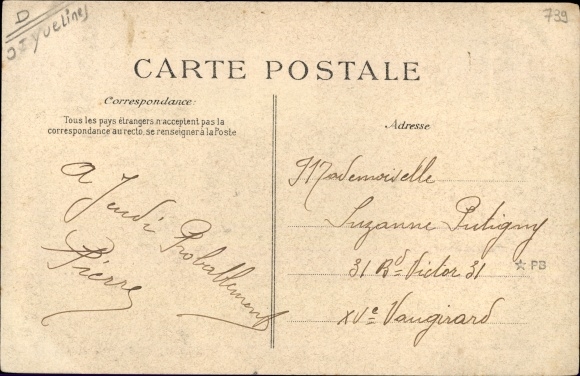 D
Yvelines
739
CARTE POSTALE
Correspondance:
Tous les pays étrangers n'acceptent pas la
correspondance au recto, se renseigner à la Poste
Adresse
A Jeudi Probablement
Pierre
Mademoiselle
Suzanne Putigny
31 Bd Victor 31
XVe Vaugirard
PB